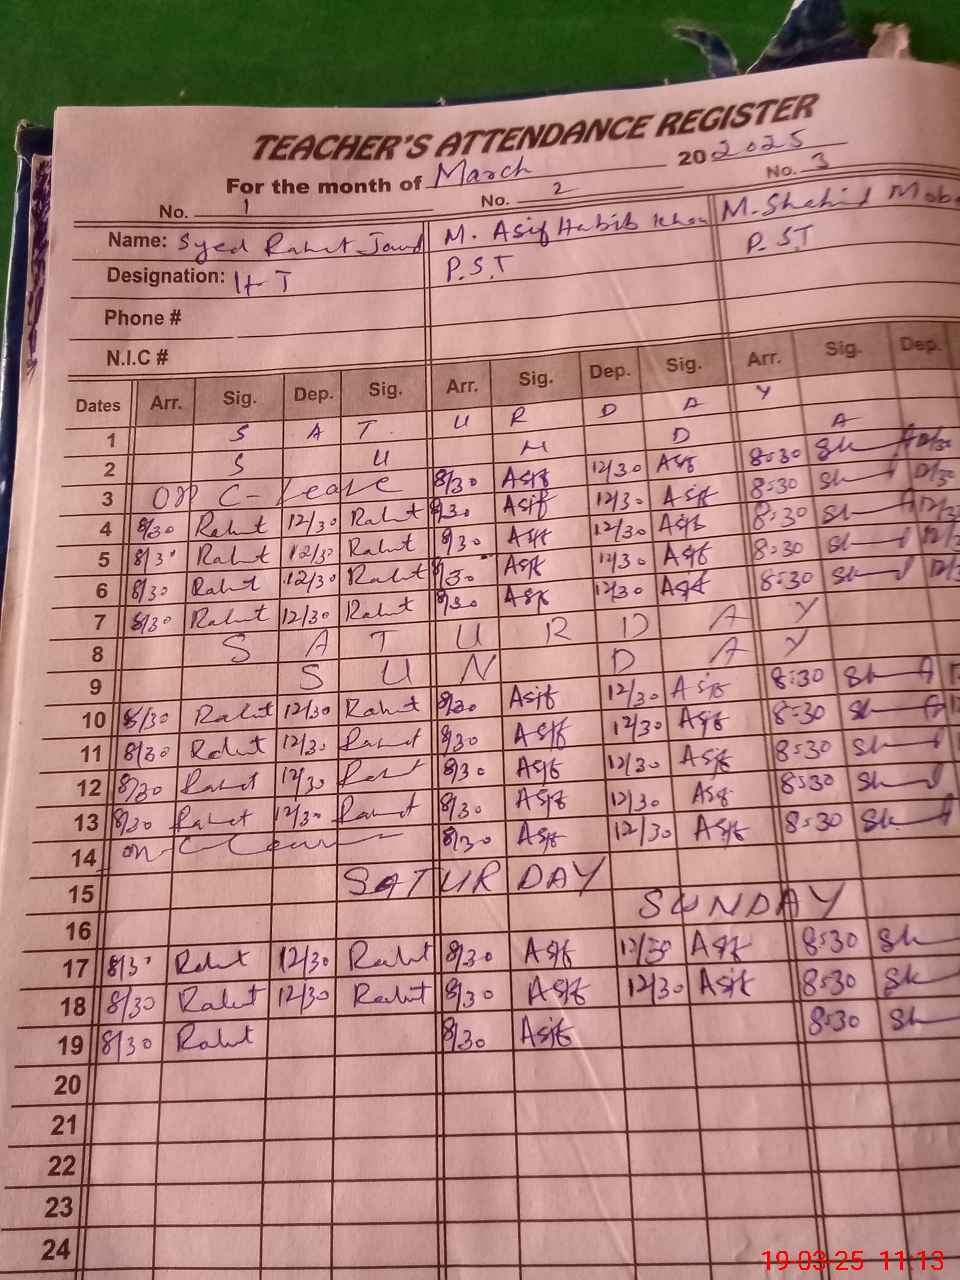 TEACHER'S ATTENDANCE REGISTER
For the month of March 2025
No. 1 No. 2 No. 3
Name: Syed Rahat M. Asif Habib Khan M. Shahid
Designation: H-T P.S.T P.S.T
Phone #
N.I.C #
Dates Arr. Sig. Dep. Sig. Arr. Sig. Dep. Sig. Arr. Sig. Dep.
1 S A T U R D A Y
2 S U N D A
3 C-Leave 8/30 Asif 12/30 Asif 8:30 Sh 12/30
4 8/30 Rahat 12/30 Rahat 8/30 Asif 12/30 Asif 8:30 Sh 12/30
5 8/30 Rahat 12/30 Rahat 8/30 Asif 12/30 Asif 8:30 Sh 12/30
6 8/30 Rahat 12/30 Rahat 8/30 Asif 12/30 Asif 8:30 Sh
7 8/30 Rahat 12/30 Rahat 8/30 Asif 12/30 Asif 8:30 Sh 12/30
8 S A T U R D A Y
9 S U N D A Y
10 8/30 Rahat 12/30 Rahat 8/30 Asif 12/30 Asif 8:30 Sh
11 8/30 Rahat 12/30 Rahat 8/30 Asif 12/30 Asif 8:30 Sh
12 8/30 Rahat 12/30 Rahat 8/30 Asif 12/30 Asif 8:30 Sh
13 8/30 Rahat 12/30 Rahat 8/30 Asif 12/30 Asif 8:30 Sh
14 on C Leave 8/30 Asif 12/30 Asif 8:30 Sh
15 SATURDAY
16 SUNDAY
17 8/30 Rahat 12/30 Rahat 8/30 Asif 12/30 Asif 8:30 Sh
18 8/30 Rahat 12/30 Rahat 8/30 Asif 12/30 Asif 8:30 Sh
19 8/30 Rahat 8/30 Asif 8:30 Sh
20
21
22
23
24
19-03-25 11:13